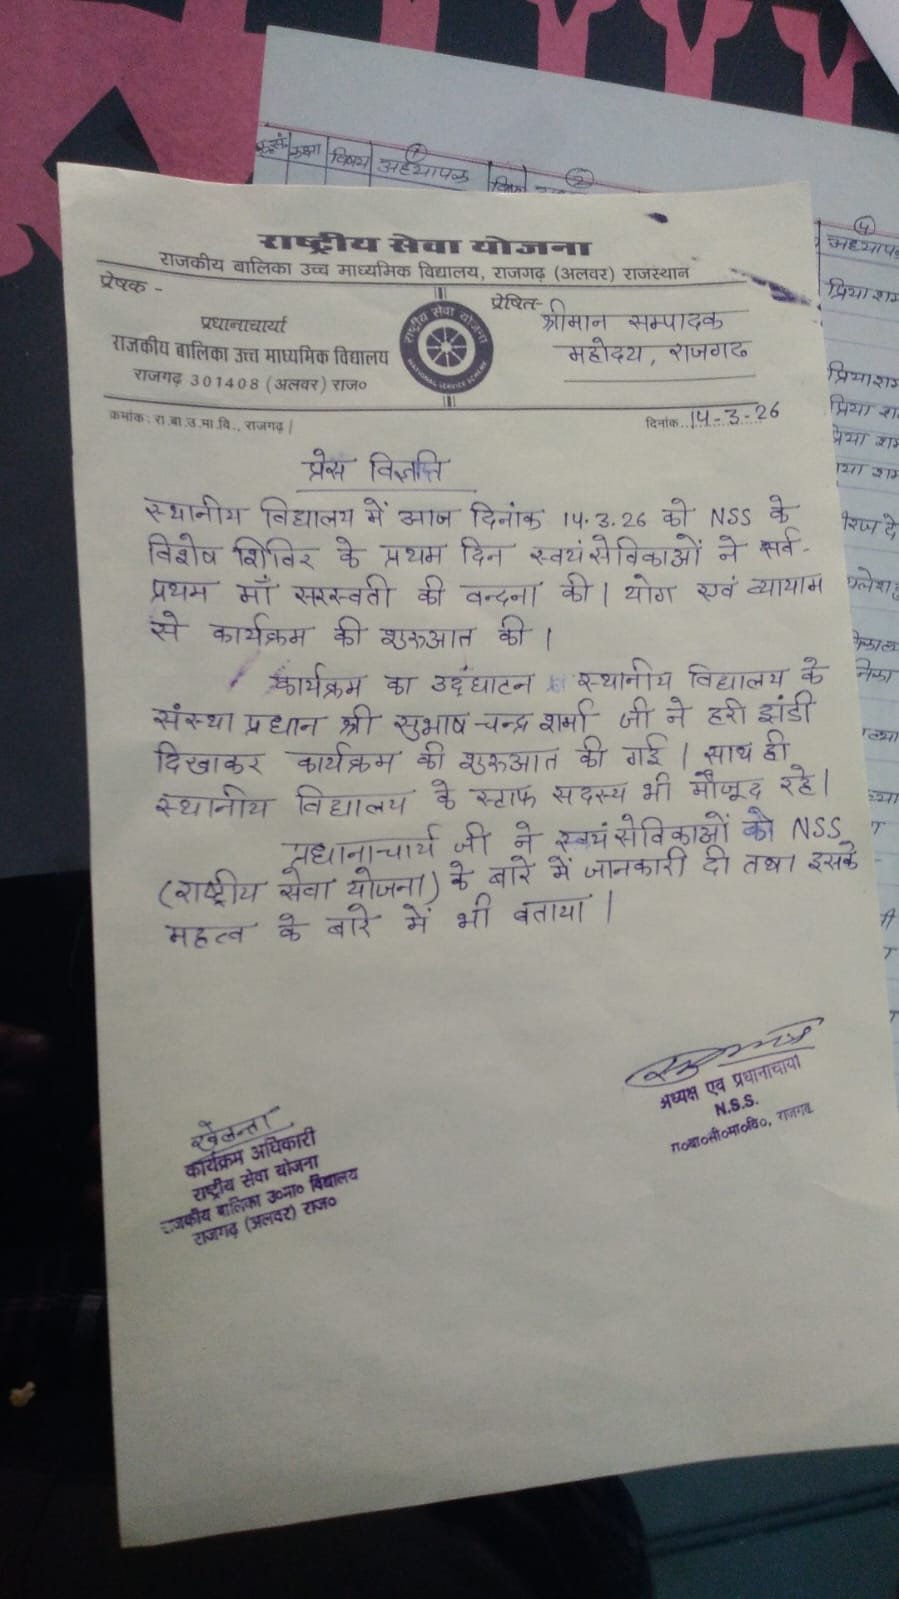 राष्ट्रीय सेवा योजना
राजकीय बालिका उच्च माध्यमिक विद्यालय, राजगढ़ (अलवर) राजस्थान
प्रेषक -
प्रधानाचार्या
राजकीय बालिका उच्च माध्यमिक विद्यालय
राजगढ़ 301408 (अलवर) राज०
राष्ट्रीय सेवा योजना
NATIONAL SERVICE SCHEME
प्रेषित-
श्रीमान सम्पादक
महोदय, राजगढ
क्रमांक: रा.बा.उ.मा.वि., राजगढ़/
दिनांक 14-3-26
प्रेस विज्ञप्ति
स्थानीय विद्यालय में आज दिनांक 14.3.26 को NSS के
विशेष शिविर के प्रथम दिन स्वयंसेविकाओं ने सर्व-
प्रथम माँ सरस्वती की वन्दना की। योग एवं व्यायाम
से कार्यक्रम की शुरुआत की।
कार्यक्रम का उदंघाटन स्थानीय विद्यालय के
संस्था प्रधान श्री सुभाष चन्द्र शर्मा जी ने हरी झंडी
दिखाकर कार्यक्रम की शुरुआत की गई। साथ ही
स्थानीय विद्यालय के स्टाफ सदस्य भी मौजूद रहे।
प्रधानाचार्य जी ने स्वयंसेविकाओं को NSS
(राष्ट्रीय सेवा योजना) के बारे में जानकारी दी तथा इसके
महत्व के बारे में भी बताया।
अध्यक्ष एव प्रधानाचार्या
N.S.S.
रा०बा०सी०मा०वि०, राजगढ़
कार्यक्रम अधिकारी
राष्ट्रीय सेवा योजना
राजकीय बालिका उ०मा० विद्यालय
राजगढ़ (अलवर) राज०
कक्षा विषय अध्यापक
4
अध्याप
प्रिया शर्मा